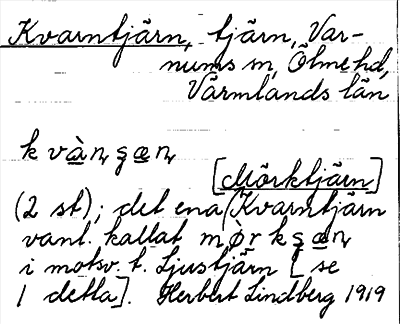 Kvarntjärn, tjärn, Var-
nums sn, Ölme hd,
Värmlands län
kvàn̨ şæn̨
[Mörktjärn]
(2 st); det ena (Kvarntjärn
vanl. kallat mørkşæn̨
i motsv. t. Ljustjärn [se
/ detta]. Herbert Lindberg 1919